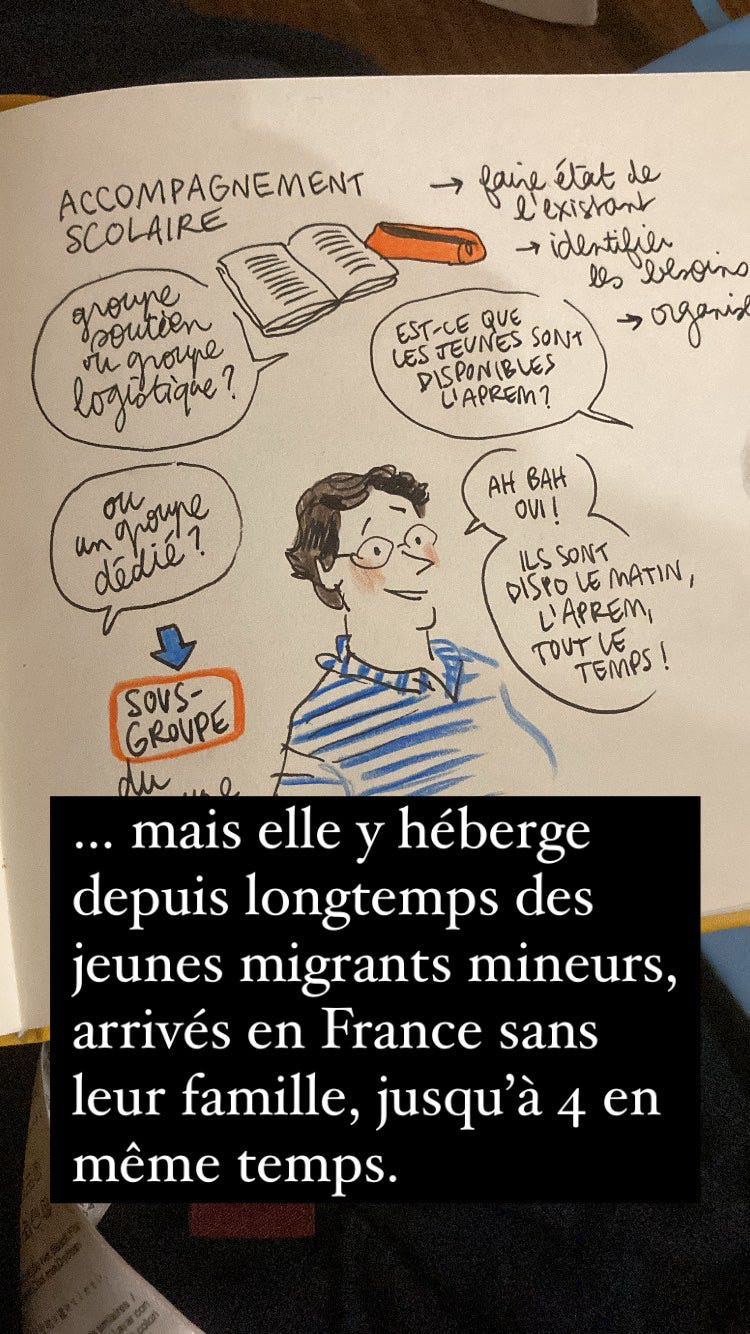 ACCOMPAGNEMENT
SCOLAIRE
→ faire état de
l'existant
→ identifier
les besoins
→ organis
groupe
soutien
ou groupe
logistique ?
EST-CE QUE
LES JEUNES SONT
DISPONIBLES
L'APREM ?
ou
un groupe
dédié ?
AH BAH
OUI !
ILS SONT
DISPO LE MATIN,
L'APREM,
TOUT LE
TEMPS !
SOUS-
GROUPE
du
... mais elle y héberge
depuis longtemps des
jeunes migrants mineurs,
arrivés en France sans
leur famille, jusqu'à 4 en
même temps.